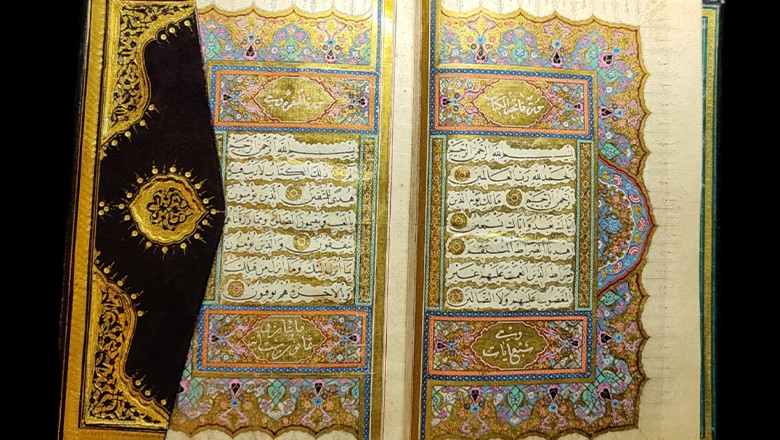 سورة فاتحة الكتاب
بِسْمِ اللَّهِ الرَّحْمَنِ الرَّحِيمِ
الْحَمْدُ لِلَّهِ رَبِّ الْعَالَمِينَ
الرَّحْمَنِ الرَّحِيمِ مَالِكِ يَوْمِ الدِّينِ
إِيَّاكَ نَعْبُدُ وَإِيَّاكَ نَسْتَعِينُ
اهْدِنَا الصِّرَاطَ الْمُسْتَقِيمَ
صِرَاطَ الَّذِينَ أَنْعَمْتَ عَلَيْهِمْ غَيْرِ
الْمَغْضُوبِ عَلَيْهِمْ وَلَا الضَّالِّينَ
وهي سبع آيات
سورة البقرة وهي
بِسْمِ اللَّهِ الرَّحْمَنِ الرَّحِيمِ
الم ذَلِكَ الْكِتَابُ لَا رَيْبَ فِيهِ
هُدًى لِلْمُتَّقِينَ الَّذِينَ يُؤْمِنُونَ
بِالْغَيْبِ وَيُقِيمُونَ الصَّلَوةَ وَمِمَّا رَزَقْنَاهُمْ
يُنْفِقُونَ وَالَّذِينَ يُؤْمِنُونَ
بِمَا أُنْزِلَ إِلَيْكَ وَمَا أُنْزِلَ مِنْ قَبْلِكَ
وَبِالْآخِرَةِ هُمْ يُوقِنُونَ
مائتان